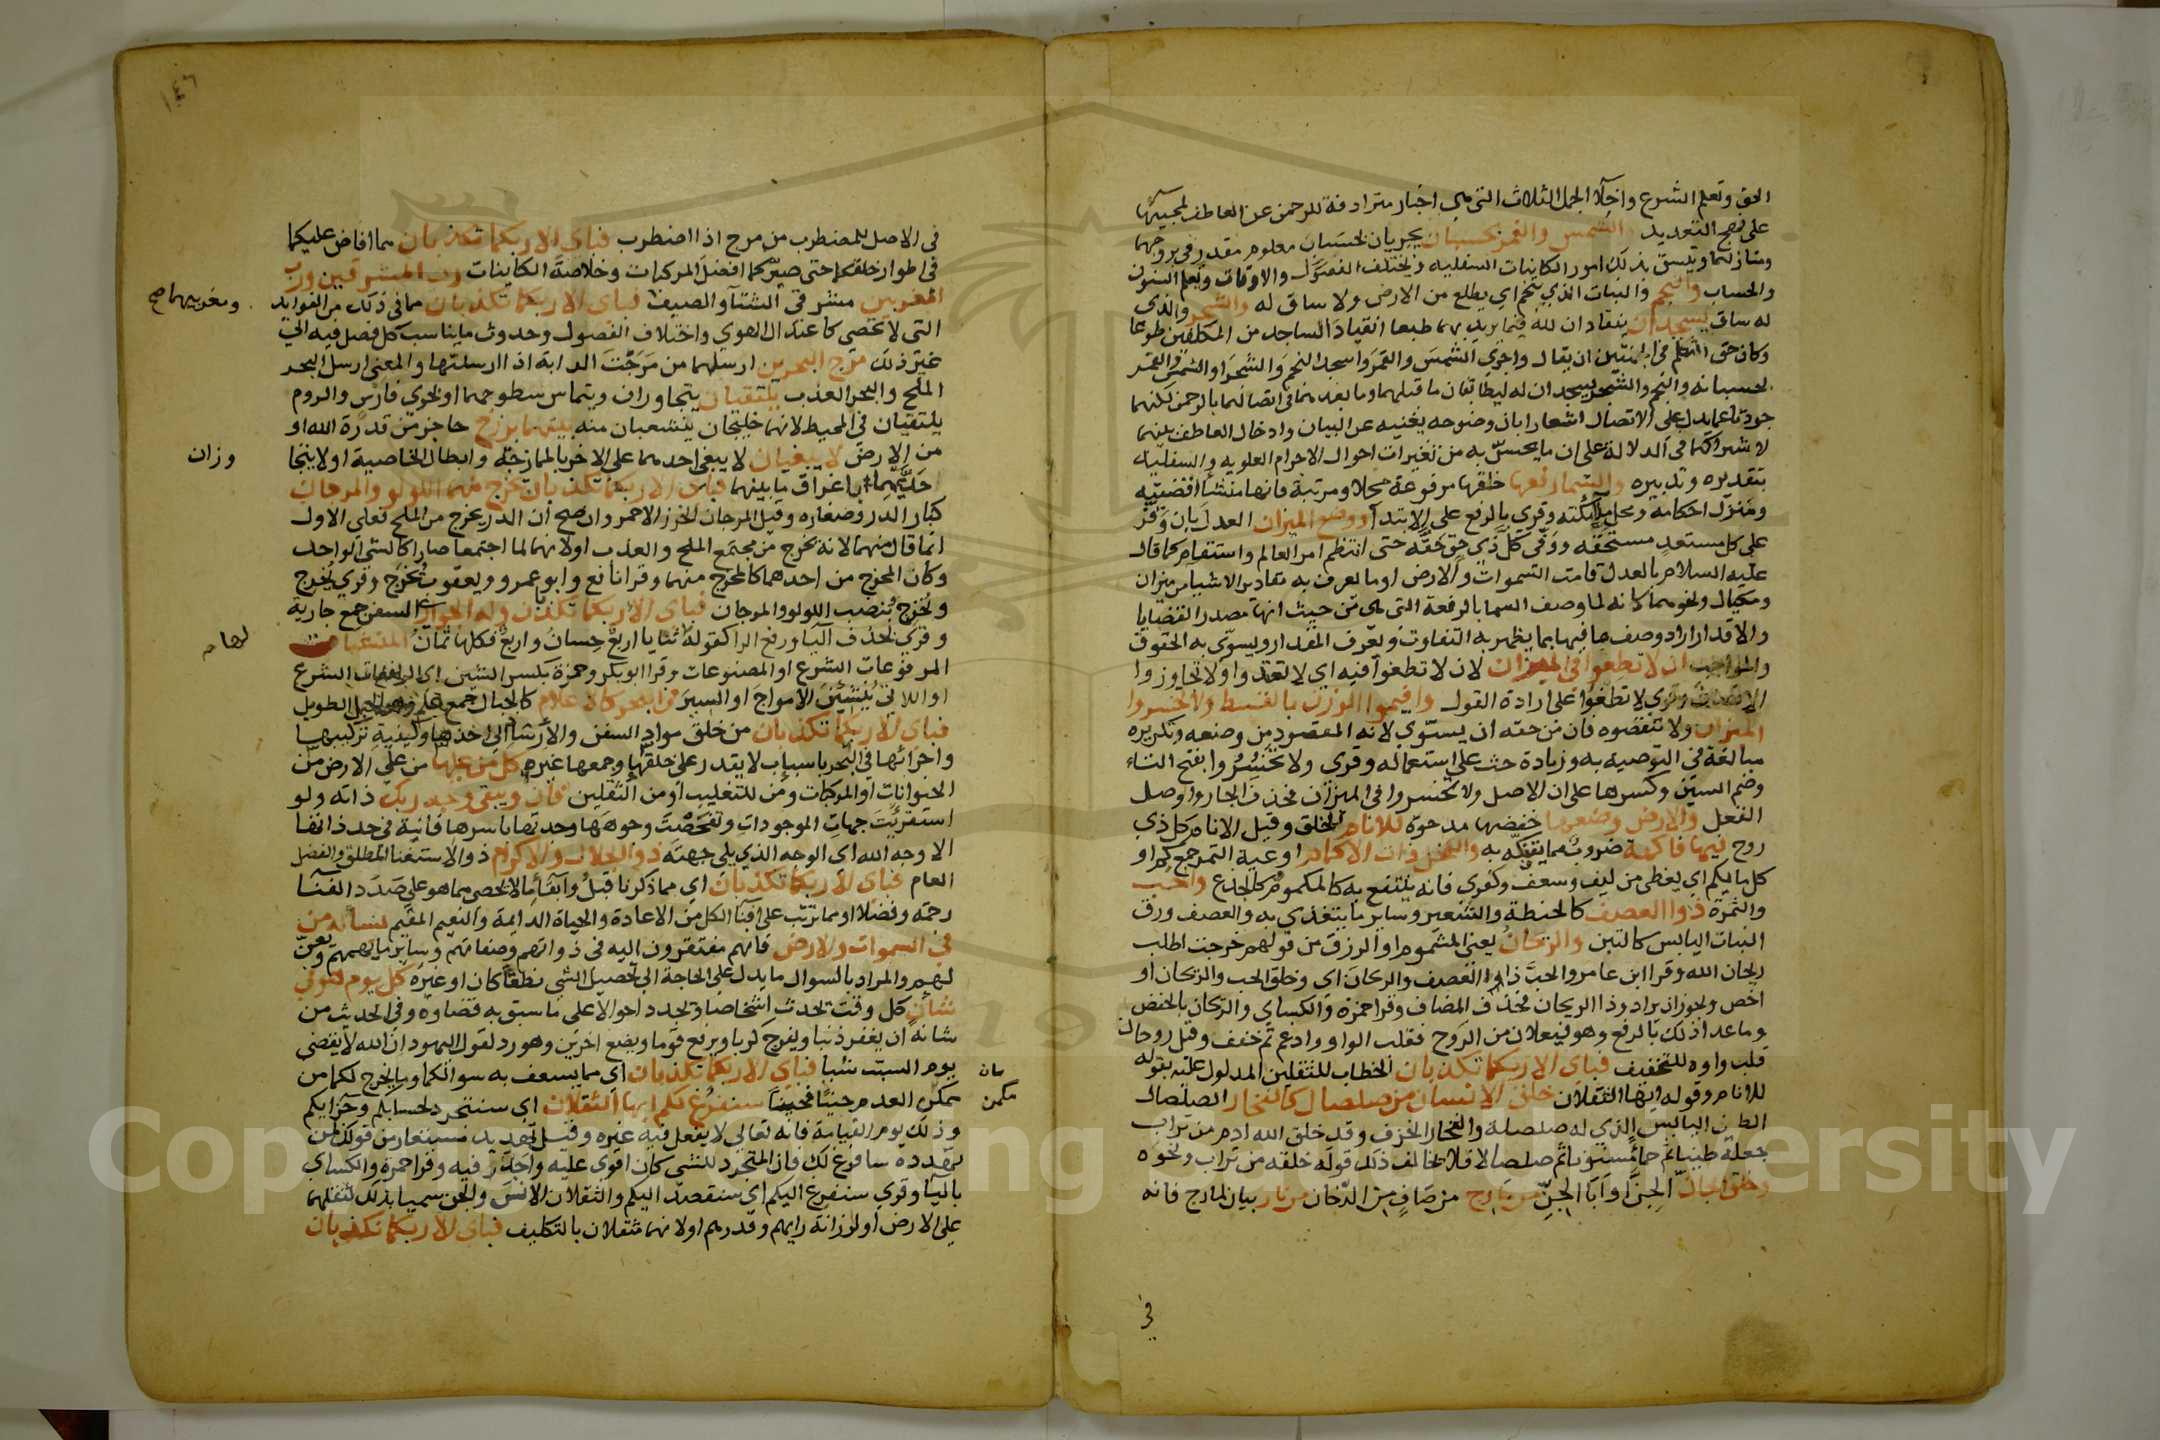 الحق وتعلم الشرع واخلا الجمل الثلاث التي هي اخبار مترادفة للرحمن عن العاطف لمجيئها
على نهج التعديد والشمس والقمر بحسبان يجريان بحسبان معلوم مقدر في بروجهما
ومنازلهما ويتسق بذلك امور الكاينات السفليه ويختلف الفصول والاوقات ويعلم السنون
والحساب والنجم والنبات الذي ينجم اي يطلع من الارض ولا ساق له والشجر والذي
له ساق يسجدان ينقادان لله فيما يريد بهما طبعا انقياد الساجد من المكلفين طوعا
وكان حق النظم في الجملتين ان يقال واجري الشمس والقمر واسجد النجم والشجر او الشمس والقمر
بحسبانه والنجم والشجر يسجدان له ليطابقان ما قبلهما وما بعدهما في اتصالهما بالرحمن لكنهما
جردتا عما يدل على الاتصال اشعارا بان وضوحه يغنيه عن البيان وادخال العاطف بينهما
لاشتراكهما في الدلالة على ان ما يحس به من تغيرات احوال الاجرام العلويه والسفليه
بتقديره وتدبيره والسما رفعها خلقها مرفوعة محلا ومرتبة فانها منشا اقضيته
ومتنزل احكامه ومحل ملائكته وقري بالرفع على الابتدا ووضع الميزان العدل بان وفر
على كل مستعد مستحقه ووفى كل ذي حق حقه حتى انتظم امر العالم واستقام كما قال
عليه السلام بالعدل قامت السموات والارض او ما يعرف به مقادير الاشيا من ميزان
ومكيال ونحوهما كانه لما وصف السما بالرفعة التي هي من حيث انها مصدر القضايا
والاقدار اراد وصف ما فيها بما يظهر به التفاوت ويعرف المقدار ويسوى به الحقوق
والمواجب ان لا تطغوا في الميزان لان لا تطغوا فيه اي لا تعتدوا ولا تجاوزوا
الانصاف وقري لا تطغوا على ارادة القول واقيموا الوزن بالقسط ولا تخسروا
الميزان ولا تنقصوه فان من حقه ان يستوي لانه المقصود من وضعه وتكريره
مبالغة في التوصيه به وزيادة حث على استعماله وقري ولا تخسروا بفتح التاء
وضم السين وكسرها على ان الاصل ولا تخسروا في الميزان فحذف الجار واوصل
الفعل والارض وضعها خفضها مدحوة للانام للخلق وقيل الانام كل ذي
روح فيها فاكهة ضروب مما يتفكه به والنخل ذات الاكمام اوعية التمر جمع كم او
كل ما يكم اي يغطى من ليف وسعف وكفرى فانه ينتفع به كالمكموم كالجذع والحب
والثمرة ذوا العصف كالحنطة والشعير وساير ما يتغذي به والعصف ورق
النبات اليابس كالتبن والريحان يعني المشموم او الرزق من قولهم خرجت اطلب
ريحان الله وقرا ابن عامر والحب ذا العصف والريحان اي وخلق الحب والريحان او
اخص ويجوز ان يراد وذا الريحان فحذف المضاف وقرا حمزة والكسائي والريحان بالخفض
وما عدا ذلك بالرفع وهو فيعلان من الروح فقلب الواو وادغم ثم خفف وقيل روحان
قلب واوه للتخفيف فباي الاء ربكما تكذبان الخطاب للثقلين المدلول عليه بقوله
للانام وقوله ايها الثقلان خلق الانسان من صلصال كالفخار الصلصال
الطين اليابس الذي له صلصلة والفخار الخزف وقد خلق الله ادم من تراب
جعله طينا ثم حمأ مسنون ثم صلصالا فلا يخالف ذلك قوله خلقه من تراب ونحوه
وخلق الجان الجن او ابا الجن من مارج من صاف من الدخان من نار بيان لمارج فانه
في
١٤٦
في الاصل للمضطرب من مرج اذا اضطرب فباي الاء ربكما تكذبان مما افاض عليكما
في اطوار خلقكما حتى صيركما افضل المركبات وخلاصة الكاينات رب المشرقين ورب
المغربين مشرقي الشتا والصيف فباي الاء ربكما تكذبان مما في ذلك من الفوايد
ومغربيهما صح
التي لا تحصى كاعتدال الهوي واختلاف الفصول وحدوث ما يناسب كل فصل فيه الي
غير ذلك مرج البحرين ارسلهما من مرجت الدابة اذا ارسلتها والمعنى ارسل البحر
الملح والبحر العذب يلتقيان يتجاوران ويتماس سطوحهما او بحري فارس والروم
يلتقيان في المحيط لانهما خليجان ينشعبان منه بينهما برزخ حاجز من قدرة الله او
من الارض لا يبغيان لا يبغي احدهما على الاخر بالممازجة وابطال الخاصية او لا يتجا
وزان
حديهما باغراق ما بينهما فباي الاء ربكما تكذبان يخرج منهما اللولو والمرجان
كبار الدر وصغاره وقيل المرجان الخرز الاحمر وان صح ان الدر يخرج من الملح فعلى الاول
انما قال منهما لانه يخرج من مجتمع الملح والعذب او لانهما لما اجتمعا صارا كالشي الواحد
وكان المخرج من احدهما كالمخرج منهما وقرا نافع وابو عمرو ويعقوب يخرج وقري نخرج
ويخرج بنصب اللولو والمرجان فباي الاء ربكما تكذبان وله الجوار السفن جمع جارية
وقري بحذف اليا ورفع الرا كقوله ثنايا اربع حسان واربع فكلها ثمان المنشآت
لها م
المرفوعات الشرع او المصنوعات وقرا ابو بكر وحمزة بكسر الشين اي الرافعات الشرع
او اللاتي ينشئن الامواج او السير في البحر كالاعلام كالجبال جمع علم وهو الجبل الطويل
فباي الاء ربكما تكذبان من خلق مواد السفن والارشاد الى اخذها وكيفية تركيبها
واجرائها في البحر باسباب لا يقدر على خلقها وجمعها غيره كل من عليها من على الارض من
الحيوانات او المركبات ومن للتغليب او من الثقلين فان ويبقى وجه ربك ذاته ولو
استقريت جهات الموجودات وتفحصت وجوهها وجدتها باسرها فانية في حد ذاتها
الا وجه الله اي الوجه الذي يلي جهته ذو الجلال والاكرام ذو الاستغنا المطلق والفضل
العام فباي الاء ربكما تكذبان اي مما ذكرنا قبل وابقا ما لا يحصى مما هو على صدد الفنا
رحمة وفضلا او مما ترتب على افنا الكل من الاعادة والحياة الدايمة والنعيم المقيم يساله من
في السموات والارض فانهم مفتقرون اليه في ذواتهم وصفاتهم وساير ما يهمهم ويعن
لهم والمراد بالسوال ما يدل على الحاجة الى تحصيل الشي نطقا كان او غيره كل يوم هو في
شان كل وقت يحدث اشخاصا ويجدد احوالا على ما سبق به قضاوه وفي الحديث من
شانه ان يغفر ذنبا ويفرج كربا ويرفع قوما ويضع اخرين وهو رد لقول اليهود ان الله لا يقضي
يوم السبت شيا فباي الاء ربكما تكذبان اي مما يسعف به سوالكما وما يخرج لكما من
مكمن
ممكن العدم حينا فحينا سنفرغ لكم ايها الثقلان اي سنتجرد لحسابكم وجزايكم
وذلك يوم القيامة فانه تعالى لا يفعل فيه غيره وقيل تهديد مستعار من قولك لمن
تهدده سافرغ لك فان المتجرد للشي كان اقوى عليه واجد فيه وقرا حمزة والكسائي
باليا وقري سنفرغ اليكم اي سنقصد اليكم والثقلان الانس والجن سميا بذلك لثقلهما
على الارض او لرزانة رايهم وقدرهم او لانهما مثقلان بالتكليف فباي الاء ربكما تكذبان